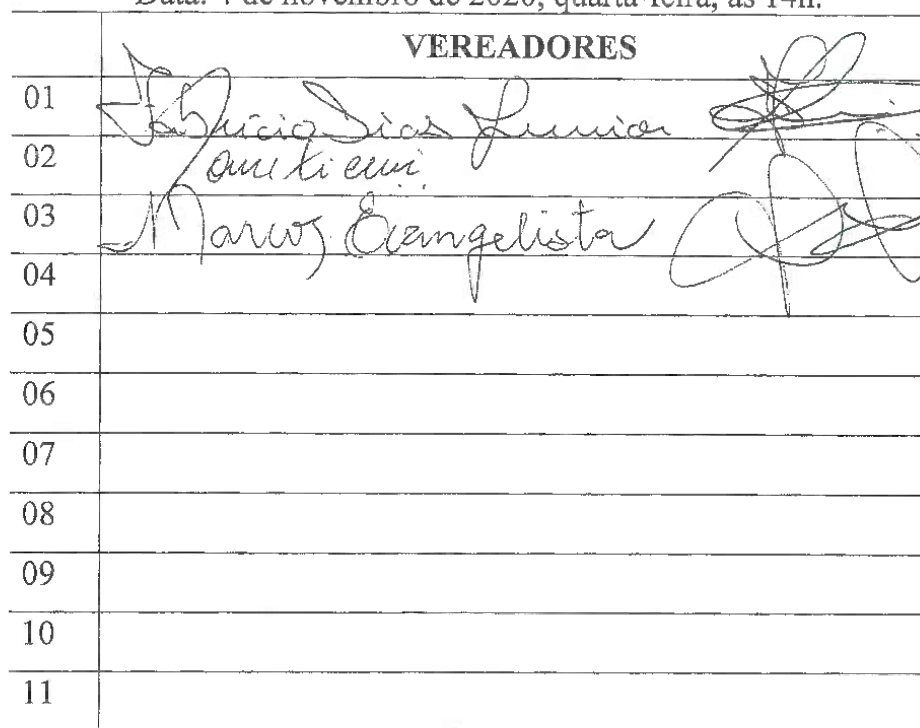 Data: 4 de novembro de 2020, quarta-feira, às 14h.
VEREADORES
01 Fabrício Dias Junior
02
03 Marcos Evangelista
04
05
06
07
08
09
10
11